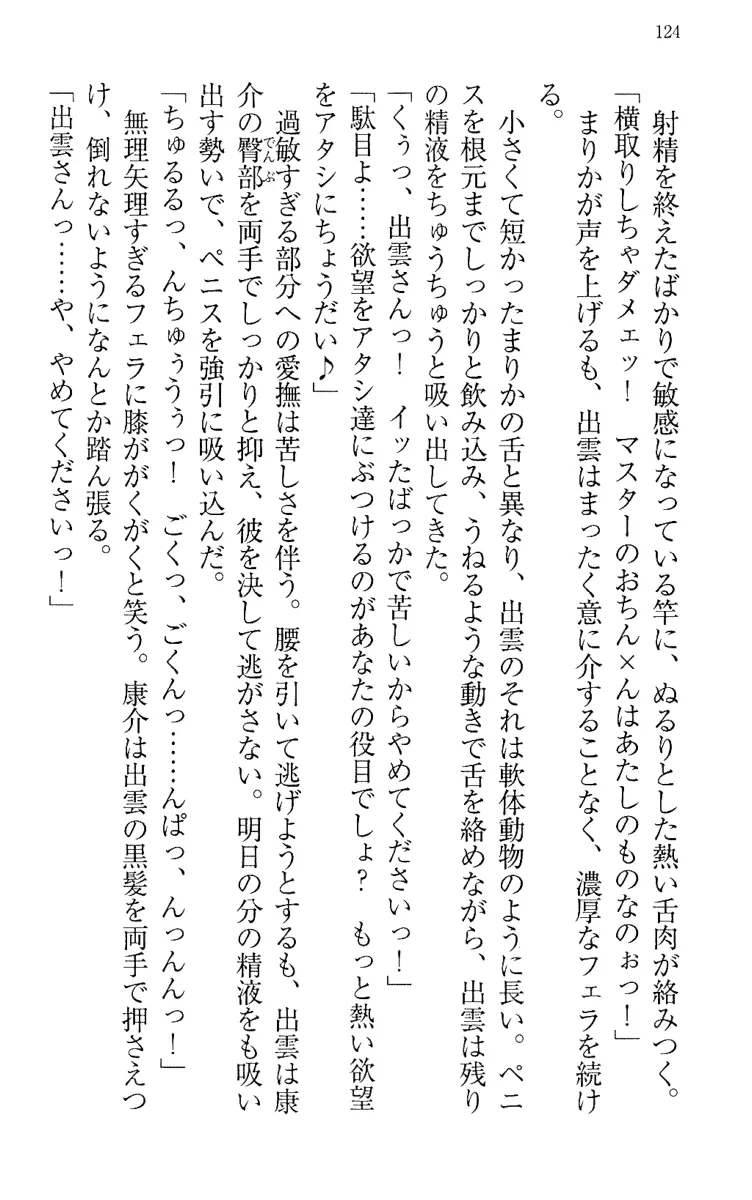 124
射精を終えたばかりで敏感になっている竿に、ぬるりとした熱い舌肉が絡みつく。
「横取りしちゃダメェッ！　マスターのおちん×んはあたしのものなのぉっ！」
まりかが声を上げるも、出雲はまったく意に介することなく、濃厚なフェラを続け
る。
小さくて短かったまりかの舌と異なり、出雲のそれは軟体動物のように長い。ペニ
スを根元までしっかりと飲み込み、うねるような動きで舌を絡めながら、出雲は残り
の精液をちゅうちゅうと吸い出してきた。
「くぅっ、出雲さんっ！　イッたばっかで苦しいからやめてくださいっ！」
「駄目よ……欲望をアタシ達にぶつけるのがあなたの役目でしょ？　もっと熱い欲望
をアタシにちょうだい♪」
過敏すぎる部分への愛撫は苦しさを伴う。腰を引いて逃げようとするも、出雲は康
介の臀部でんぶを両手でしっかりと抑え、彼を決して逃がさない。明日の分の精液をも吸い
出す勢いで、ペニスを強引に吸い込んだ。
「ちゅるるっ、んちゅううぅっ！　ごくっ、ごくんっ……んぱっ、んっんんっ！」
無理矢理すぎるフェラに膝ががくがくと笑う。康介は出雲の黒髪を両手で押さえつ
け、倒れないようになんとか踏ん張る。
「出雲さんっ……や、やめてくださいっ！」